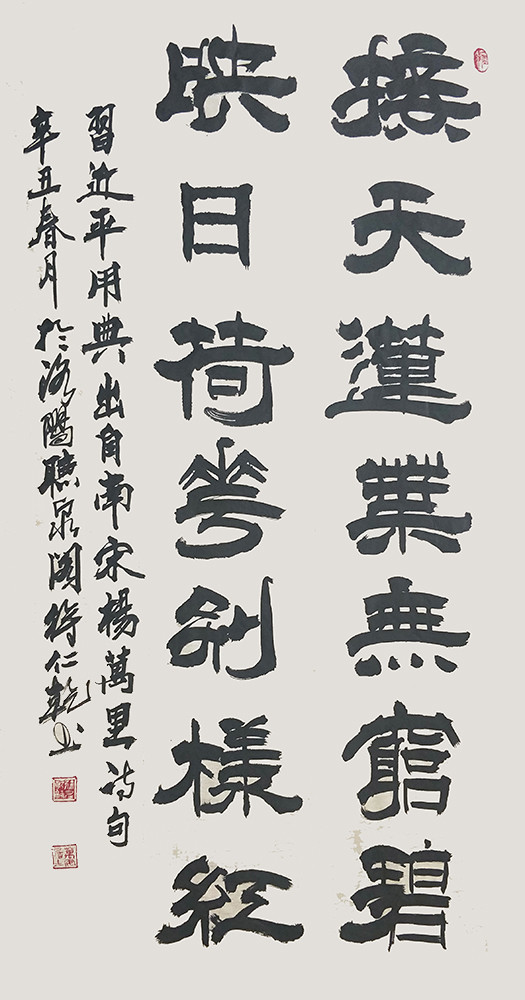 接天蓮葉無窮碧
映日荷花別樣紅
習近平用典出自南宋楊萬里詩句
辛丑春月於洛陽聽泉閣符仁乾书